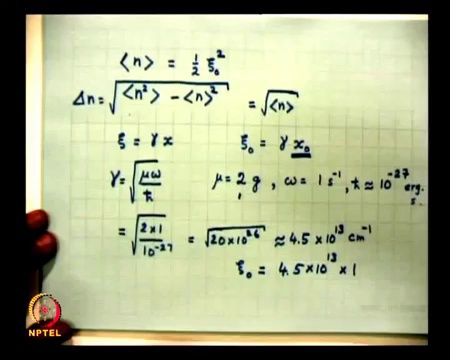 ⟨n⟩ = 1/2 ξ₀²
Δn = √(⟨n²⟩ - ⟨n⟩²) = √⟨n⟩
ξ = γ x ξ₀ = γ x₀
γ = √(μω/ħ) μ = 2 g , ω = 1 s⁻¹ , ħ ≈ 10⁻²⁷ erg. s.
= √(2×1/10⁻²⁷) = √(20×10²⁶) ≈ 4.5×10¹³ cm⁻¹
ξ₀ = 4.5×10¹³ × 1
NPTEL